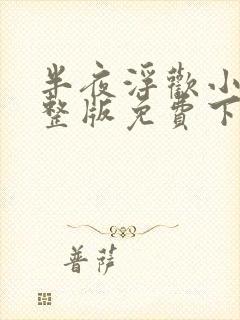 半夜淫歡小
整版免費下
菩薩